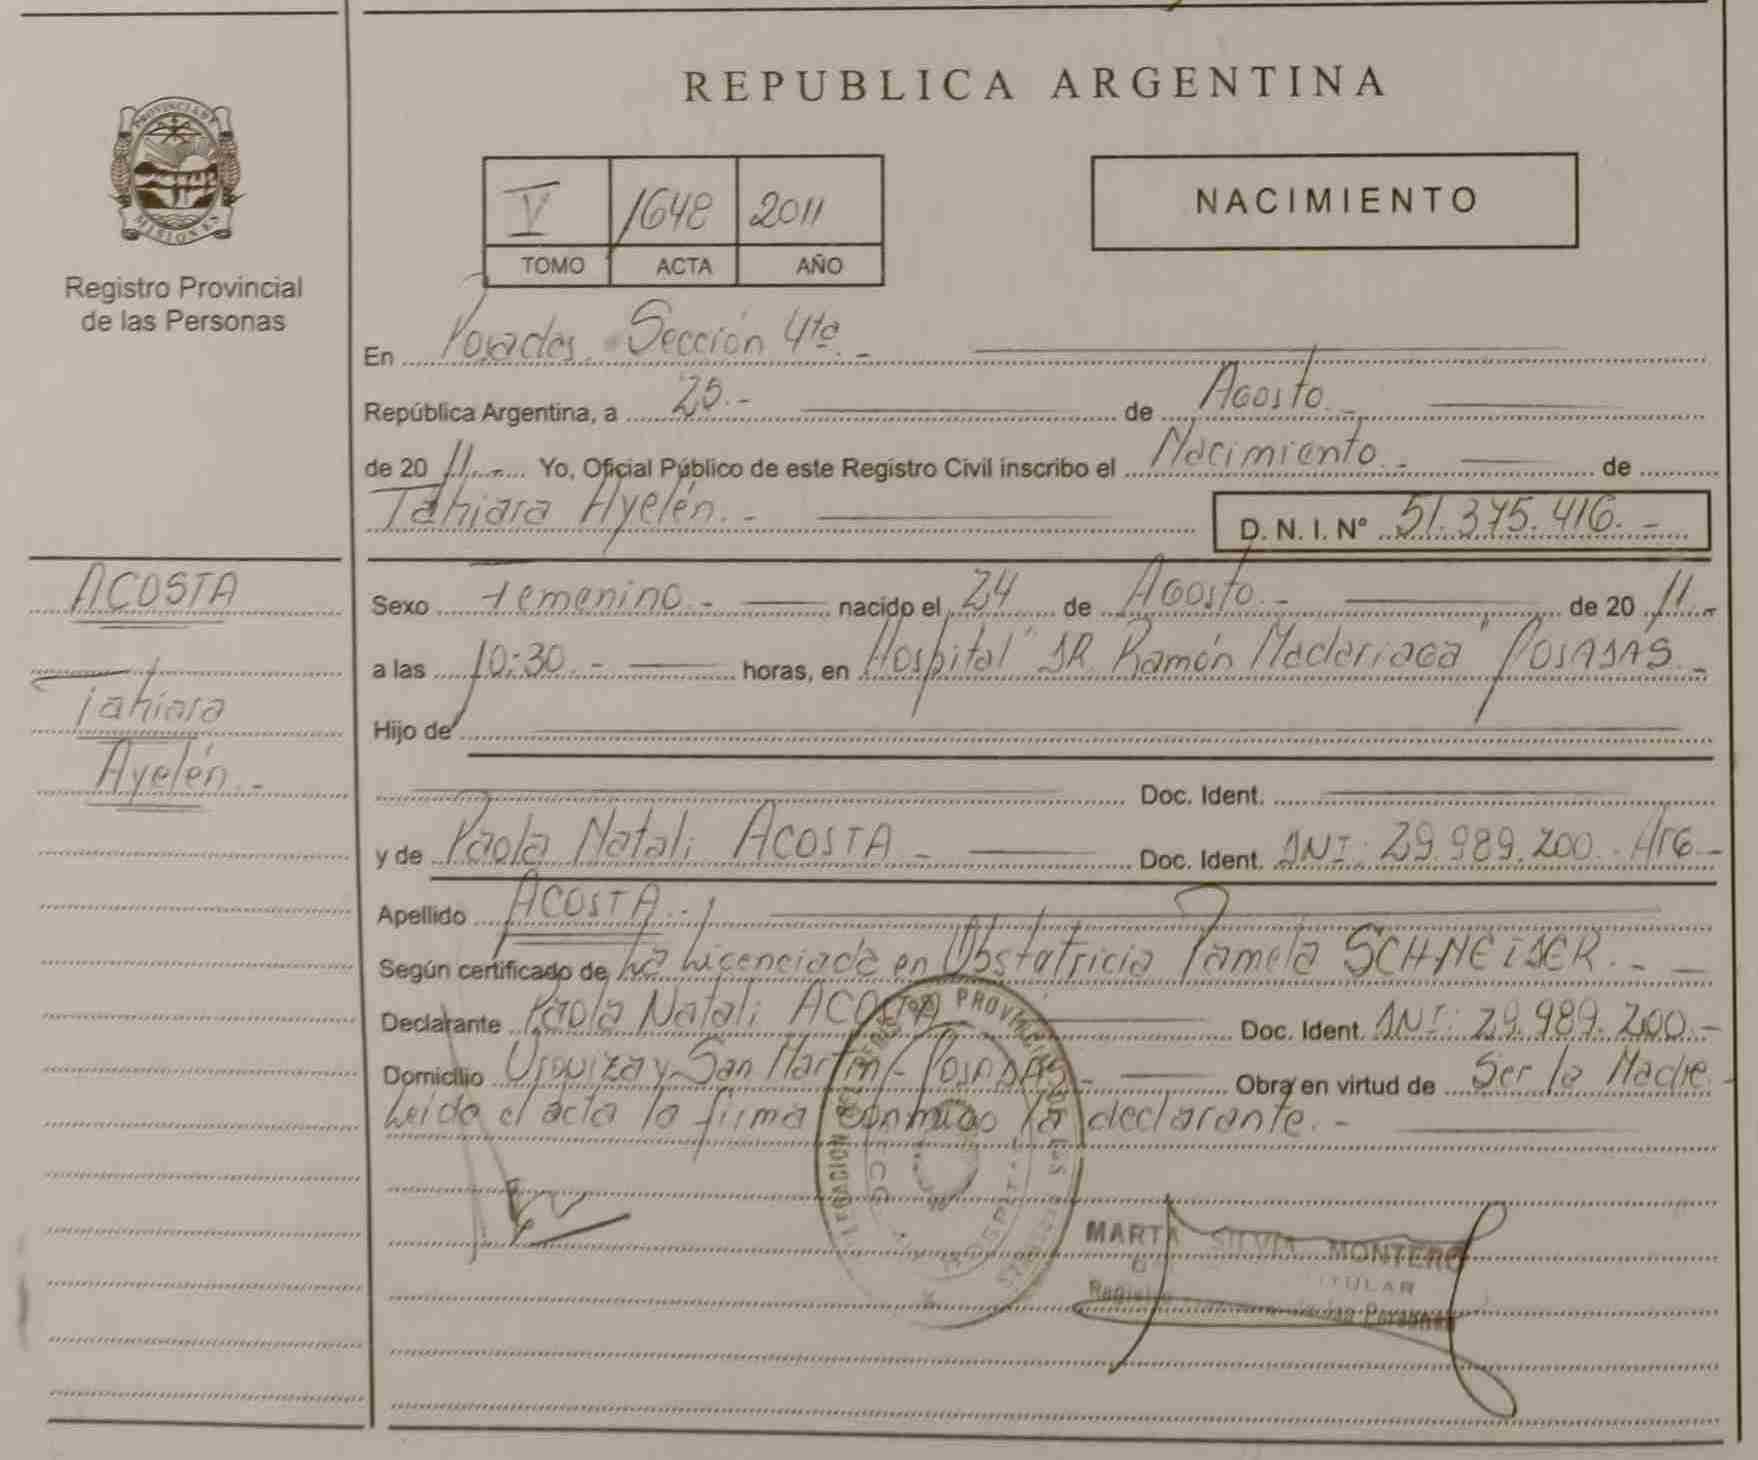 PROVINCIA DE
MISIONES
Registro Provincial
de las Personas
ACOSTA
Tahiara
Ayelén.-
REPUBLICA ARGENTINA
V 1648 2011
TOMO ACTA AÑO
NACIMIENTO
En Posadas. Sección 4ta.-
República Argentina, a 25.- de Agosto.-
de 20 11.- Yo, Oficial Público de este Registro Civil inscribo el Nacimiento.- de
Tahiara Ayelén.- D. N. I. N° 51.375.416.-
Sexo Femenino.- nacido el 24 de Agosto.- de 20 11.-
a las 10:30.- horas, en Hospital "DR. Ramón Madariaga" POSADAS.-
Hijo de
Doc. Ident.
y de Paola Natali ACOSTA.- Doc. Ident. DNI: 29.989.200.- Arg.-
Apellido ACOSTA.-
Según certificado de La Licenciada en Obstetricia Pamela SCHNEIDER.-
Declarante Paola Natali ACOSTA Doc. Ident. DNI: 29.989.200.-
Domicilio Urquiza y San Martín - POSADAS.- Obra en virtud de Ser la Madre.-
Leída el acta la firma conmigo la declarante.-
MARTA SILVIA MONTERO
TITULAR
de las Personas